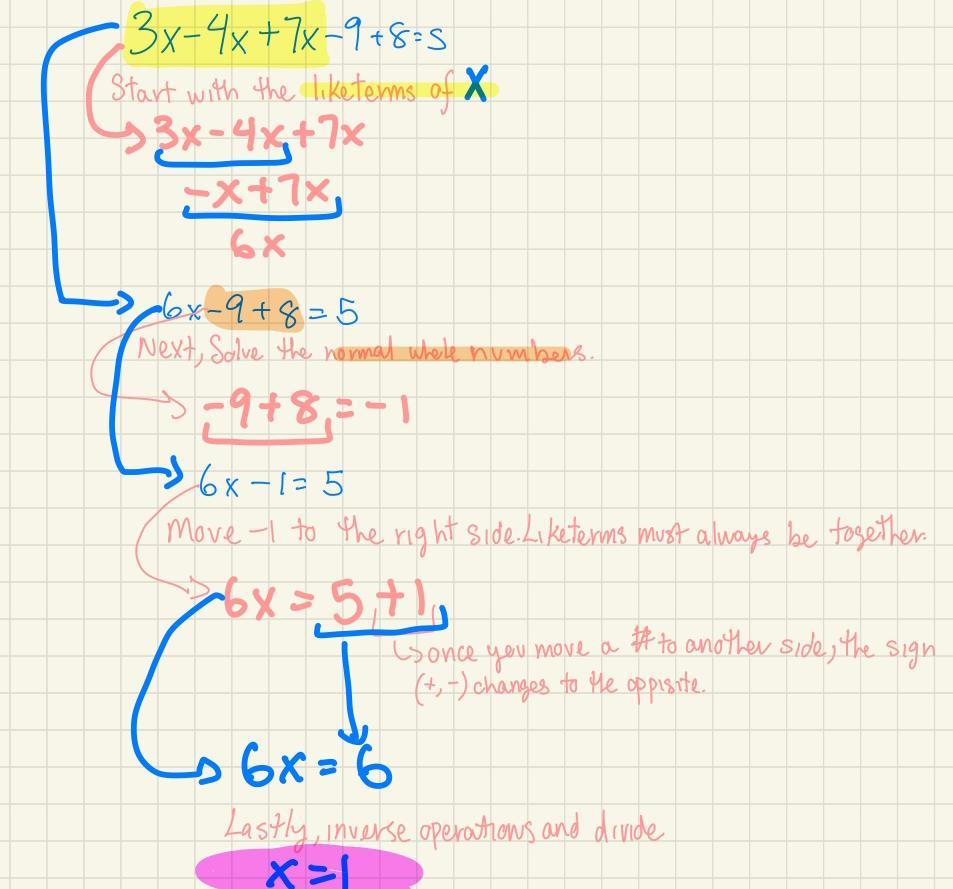 3x-4x+7x-9+8=5
Start with the like terms of X
3x-4x+7x
-x+7x
6x
6x-9+8=5
Next, Solve the normal whole numbers.
-9+8=-1
6x-1=5
Move -1 to the right side. Like terms must always be together.
6x=5+1
↳ once you move a # to another side, the sign
(+,-) changes to the oppisite.
6x=6
Lastly, inverse operations and divide
x=1